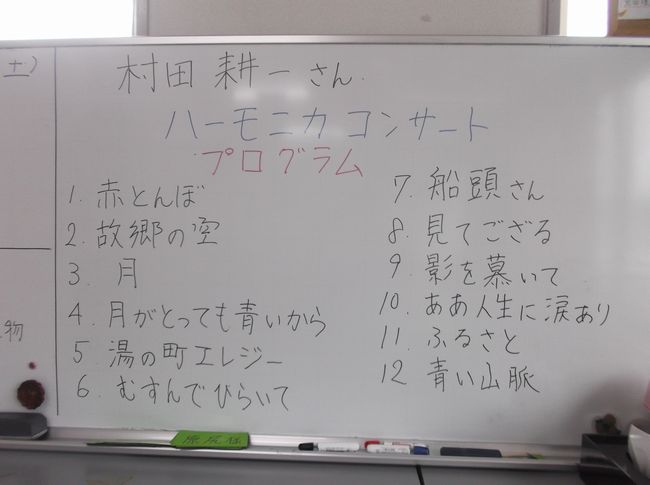 土)
村田 耕一さん
ハーモニカ コンサート
プログラム
1. 赤とんぼ
2. 故郷の空
3. 月
4. 月がとっても青いから
5. 湯の町エレジー
6. むすんでひらいて
7. 船頭さん
8. 見てござる
9. 影を慕いて
10. ああ人生に涙あり
11. ふるさと
12 青い山脈
物